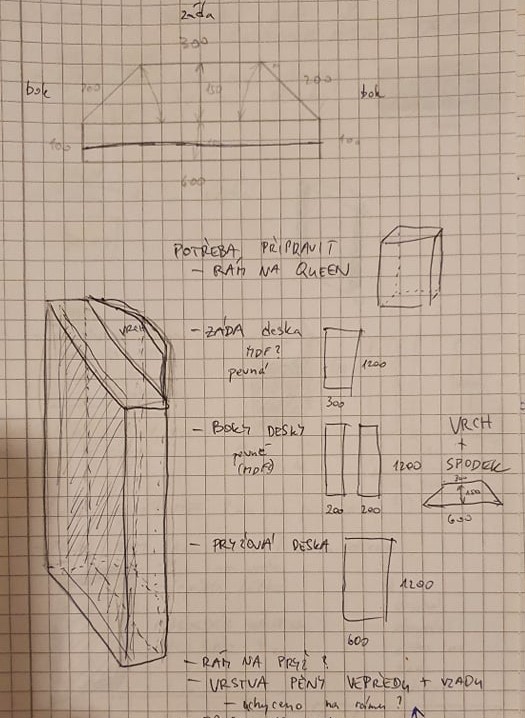 záda
300
bok
200
150
200
bok
100
600
POTŘEBA PŘIPRAVIT
- RÁM NA QUEEN
VRCH
- ZÁDA deska
MDF?
pevná
1200
300
- BOKY DESKY
pevné
(MDF)
1200
200 200
VRCH
+
SPODEK
300
150
600
- PRYŽOVÁ DESKA
1200
600
- RÁM NA PRYŽ ?
- VRSTVA PĚNY VEPŘEDU + VZADU
- uchyceno na rámu ?